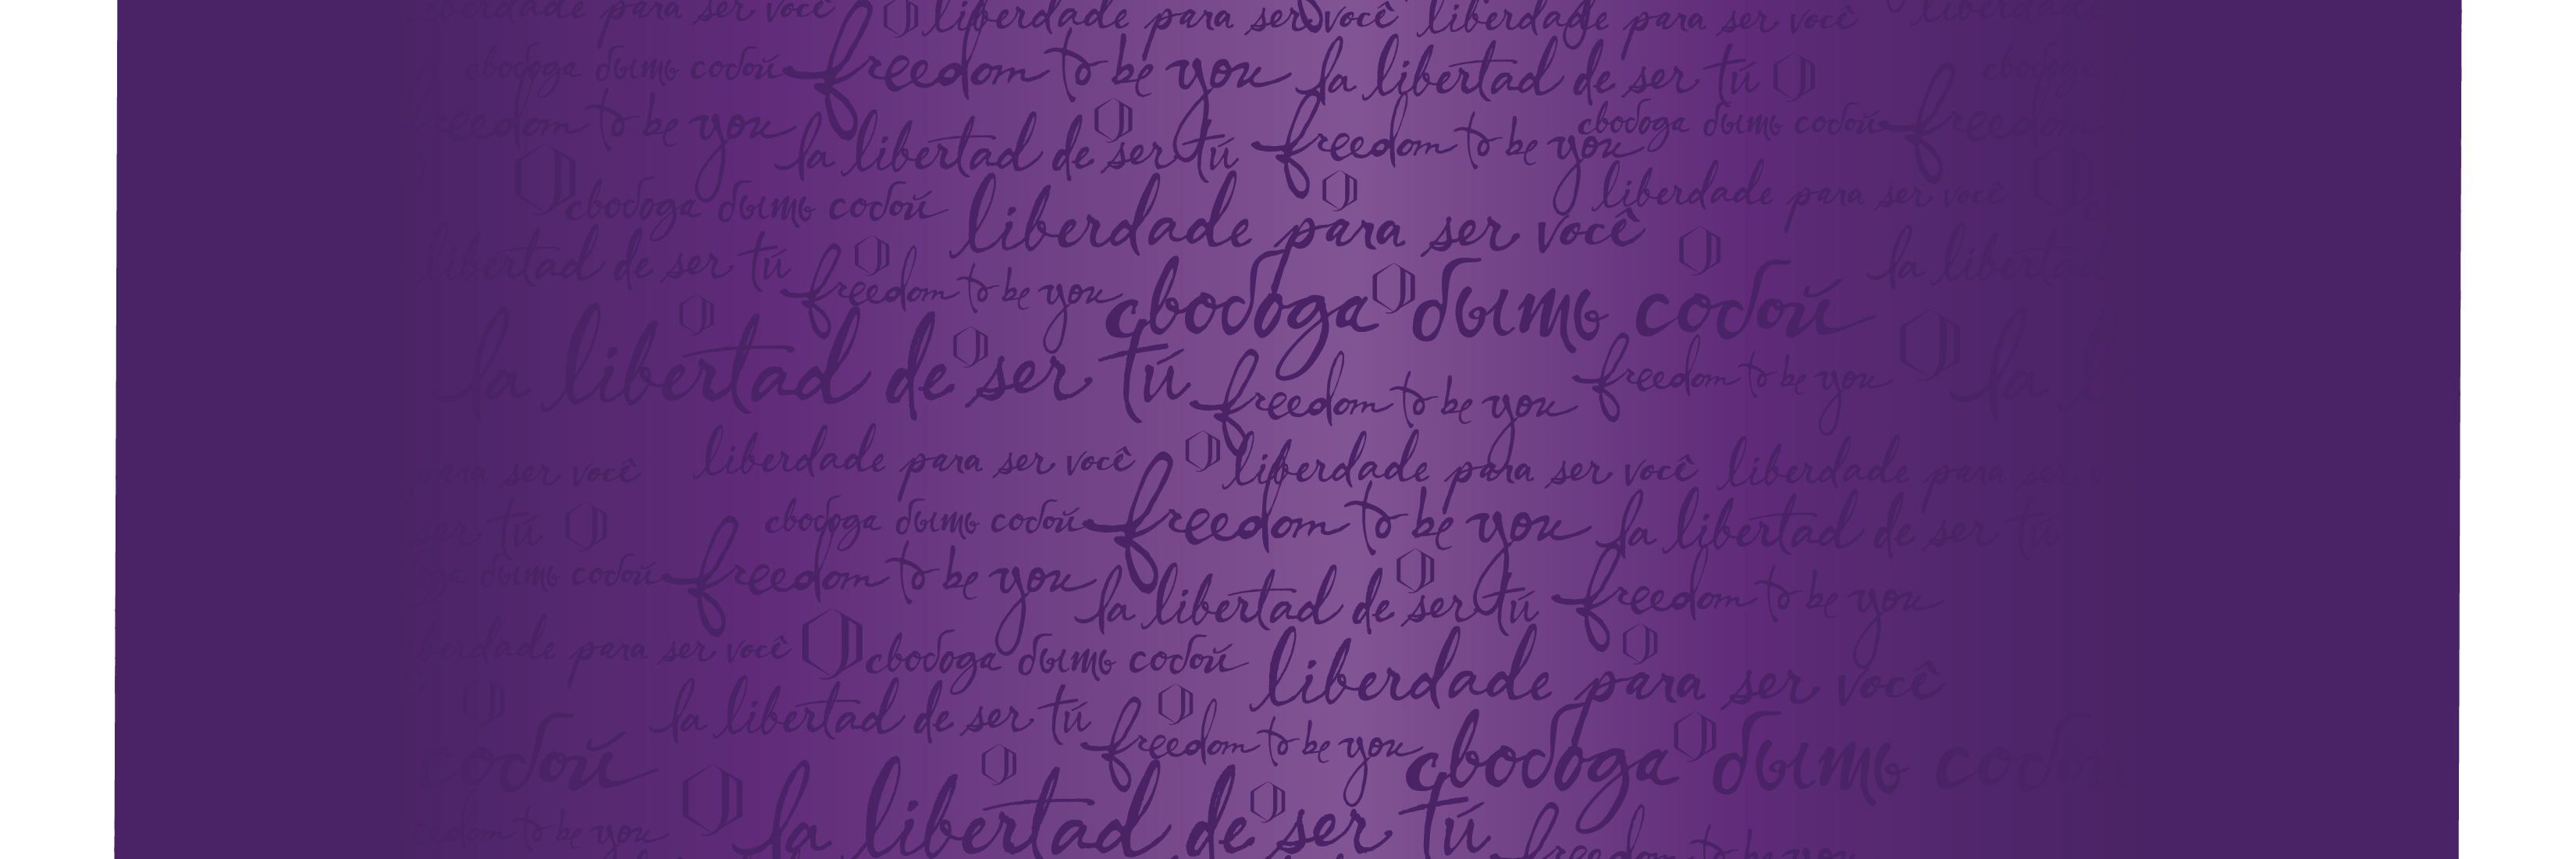 liberdade para ser você liberdade para ser você liberdade para ser você liberdade
свобода быть собой freedom to be you la libertad de ser tú свобода
freedom to be you la libertad de ser tú freedom to be you свобода быть собой freedom
свобода быть собой liberdade para ser você liberdade para ser você
libertad de ser tú freedom to be you свобода быть собой la libertad
la libertad de ser tú freedom to be you freedom to be you la
para ser você liberdade para ser você liberdade para ser você liberdade para ser
ser tú свобода быть собой freedom to be you la libertad de ser tú
быть собой freedom to be you la libertad de ser tú freedom to be you
liberdade para ser você свобода быть собой liberdade para ser você
собой la libertad de ser tú freedom to be you свобода быть собой
freedom to be you la libertad de ser tú freedom to be you